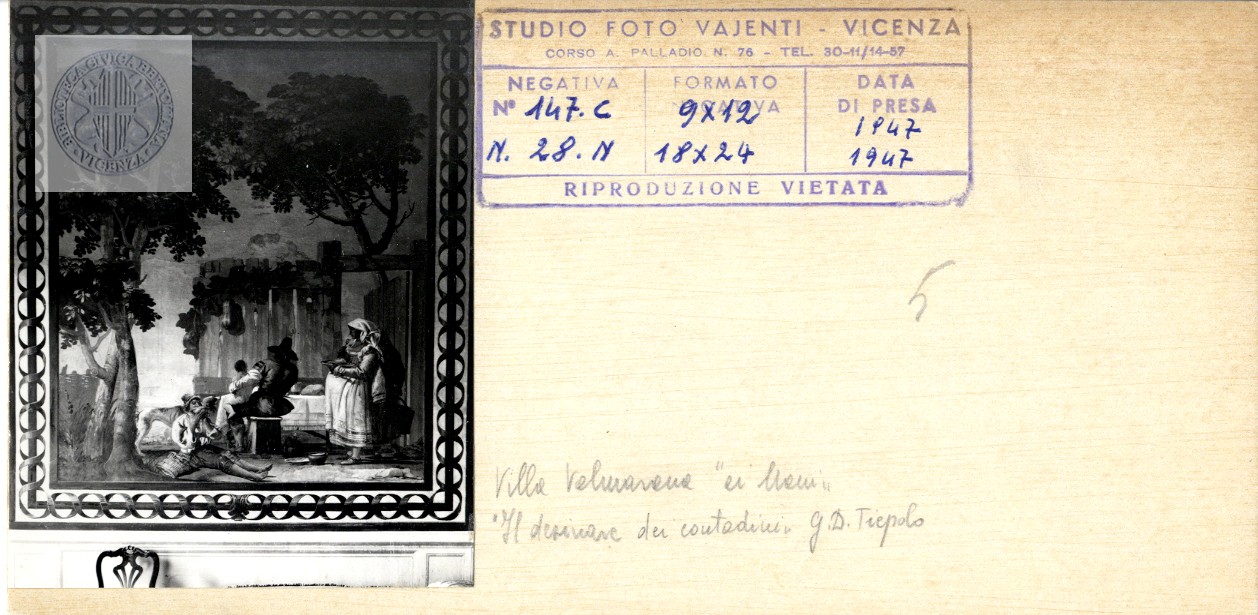 BIBLIOTECA CIVICA BERTOLIANA · VICENZA ·
STUDIO FOTO VAJENTI - VICENZA
CORSO A. PALLADIO N. 76 - TEL. 30-11/14-57
NEGATIVA FORMATO DATA
N° 147.C 9x12 NEGATIVA DI PRESA
1947
N. 28.N 18x24 1947
RIPRODUZIONE VIETATA
5
Villa Valmarana "ai Nani"
"Il desinare dei contadini" G.D. Tiepolo